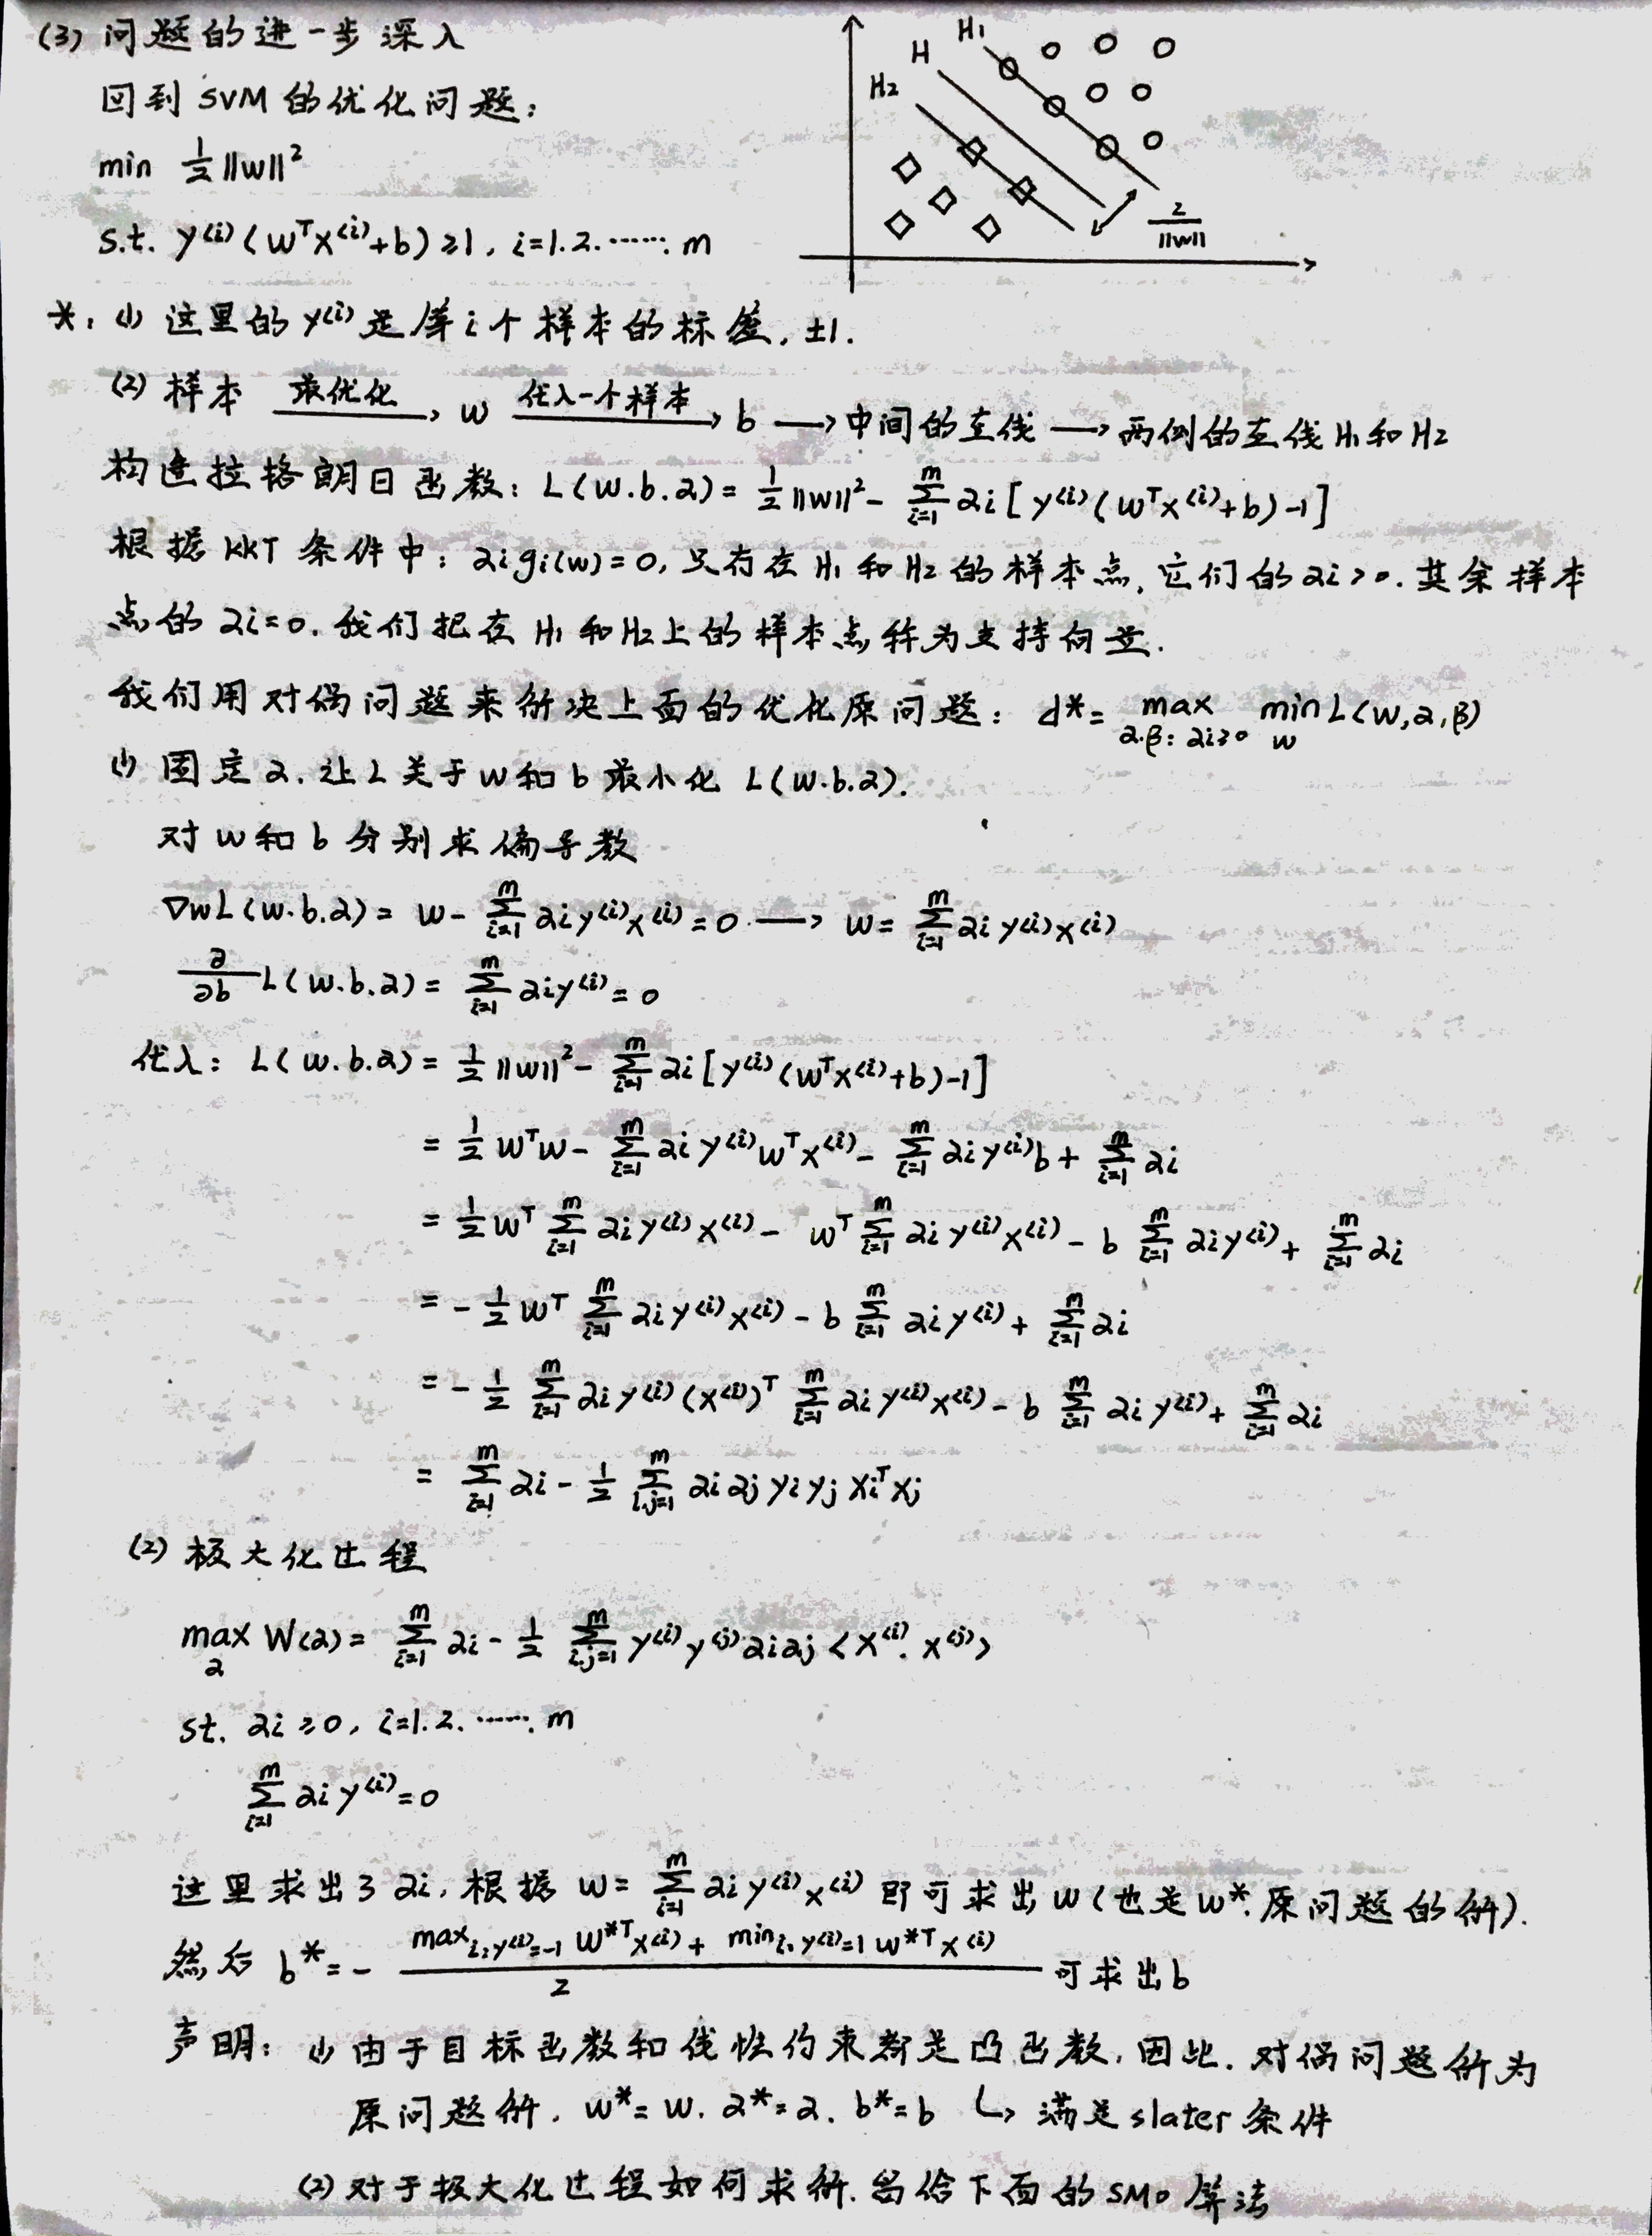 (3) 问题的进一步深入
回到 SVM 的优化问题:
min ½||w||²
s.t. y⁽ⁱ⁾(wᵀx⁽ⁱ⁾+b)≥1, i=1.2.……. m
H₁
H
H₂
2/||w||
*: (1) 这里的 y⁽ⁱ⁾ 是第 i 个样本的标签, ±1.
(2) 样本 —求优化→ w —代入一个样本→ b → 中间的直线 → 两侧的直线 H₁ 和 H₂
构造拉格朗日函数: L(w.b.α)= ½||w||² - ∑ᵢ₌₁ᵐ αi [y⁽ⁱ⁾(wᵀx⁽ⁱ⁾+b)-1]
根据 KKT 条件中: αi gi(w)=0, 只有在 H₁ 和 H₂ 的样本点, 它们的 αi>0. 其余样本
点的 αi=0. 我们把在 H₁ 和 H₂ 上的样本点称为支持向量.
我们用对偶问题来解决上面的优化原问题: d*= max_{α.β: αi≥0} min_w L(w,α,β)
(1) 固定 α. 让 L 关于 w 和 b 最小化 L(w.b.α).
对 w 和 b 分别求偏导数
∇wL(w.b.α)= w- ∑ᵢ₌₁ᵐ αi y⁽ⁱ⁾x⁽ⁱ⁾=0 → w= ∑ᵢ₌₁ᵐ αi y⁽ⁱ⁾x⁽ⁱ⁾
∂/∂b L(w.b.α)= ∑ᵢ₌₁ᵐ αi y⁽ⁱ⁾=0
代入: L(w.b.α)= ½||w||² - ∑ᵢ₌₁ᵐ αi [y⁽ⁱ⁾(wᵀx⁽ⁱ⁾+b)-1]
= ½ wᵀw - ∑ᵢ₌₁ᵐ αi y⁽ⁱ⁾wᵀx⁽ⁱ⁾ - ∑ᵢ₌₁ᵐ αi y⁽ⁱ⁾b + ∑ᵢ₌₁ᵐ αi
= ½ wᵀ ∑ᵢ₌₁ᵐ αi y⁽ⁱ⁾x⁽ⁱ⁾ - wᵀ ∑ᵢ₌₁ᵐ αi y⁽ⁱ⁾x⁽ⁱ⁾ - b ∑ᵢ₌₁ᵐ αi y⁽ⁱ⁾ + ∑ᵢ₌₁ᵐ αi
= -½ wᵀ ∑ᵢ₌₁ᵐ αi y⁽ⁱ⁾x⁽ⁱ⁾ - b ∑ᵢ₌₁ᵐ αi y⁽ⁱ⁾ + ∑ᵢ₌₁ᵐ αi
= -½ ∑ᵢ₌₁ᵐ αi y⁽ⁱ⁾(x⁽ⁱ⁾)ᵀ ∑ᵢ₌₁ᵐ αi y⁽ⁱ⁾x⁽ⁱ⁾ - b ∑ᵢ₌₁ᵐ αi y⁽ⁱ⁾ + ∑ᵢ₌₁ᵐ αi
= ∑ᵢ₌₁ᵐ αi - ½ ∑ᵢ,ⱼ₌₁ᵐ αi αj yi yj xiᵀxj
(2) 极大化过程
max_α W(α)= ∑ᵢ₌₁ᵐ αi - ½ ∑ᵢ,ⱼ₌₁ᵐ y⁽ⁱ⁾y⁽ʲ⁾αiαj <x⁽ⁱ⁾. x⁽ʲ⁾>
st. αi≥0, i=1.2.……. m
∑ᵢ₌₁ᵐ αi y⁽ⁱ⁾=0
这里求出了 αi, 根据 w= ∑ᵢ₌₁ᵐ αi y⁽ⁱ⁾x⁽ⁱ⁾ 即可求出 w(也是 w*. 原问题的解).
然后 b*= - (max_{i:y⁽ⁱ⁾=-1} w*ᵀx⁽ⁱ⁾ + min_{i:y⁽ⁱ⁾=1} w*ᵀx⁽ⁱ⁾)/2 可求出 b
声明: (1) 由于目标函数和线性约束都是凸函数, 因此. 对偶问题解为
原问题解. w*=w. α*=α. b*=b ↳ 满足 slater 条件
(2) 对于极大化过程如何求解. 留给下面的 SMO 算法